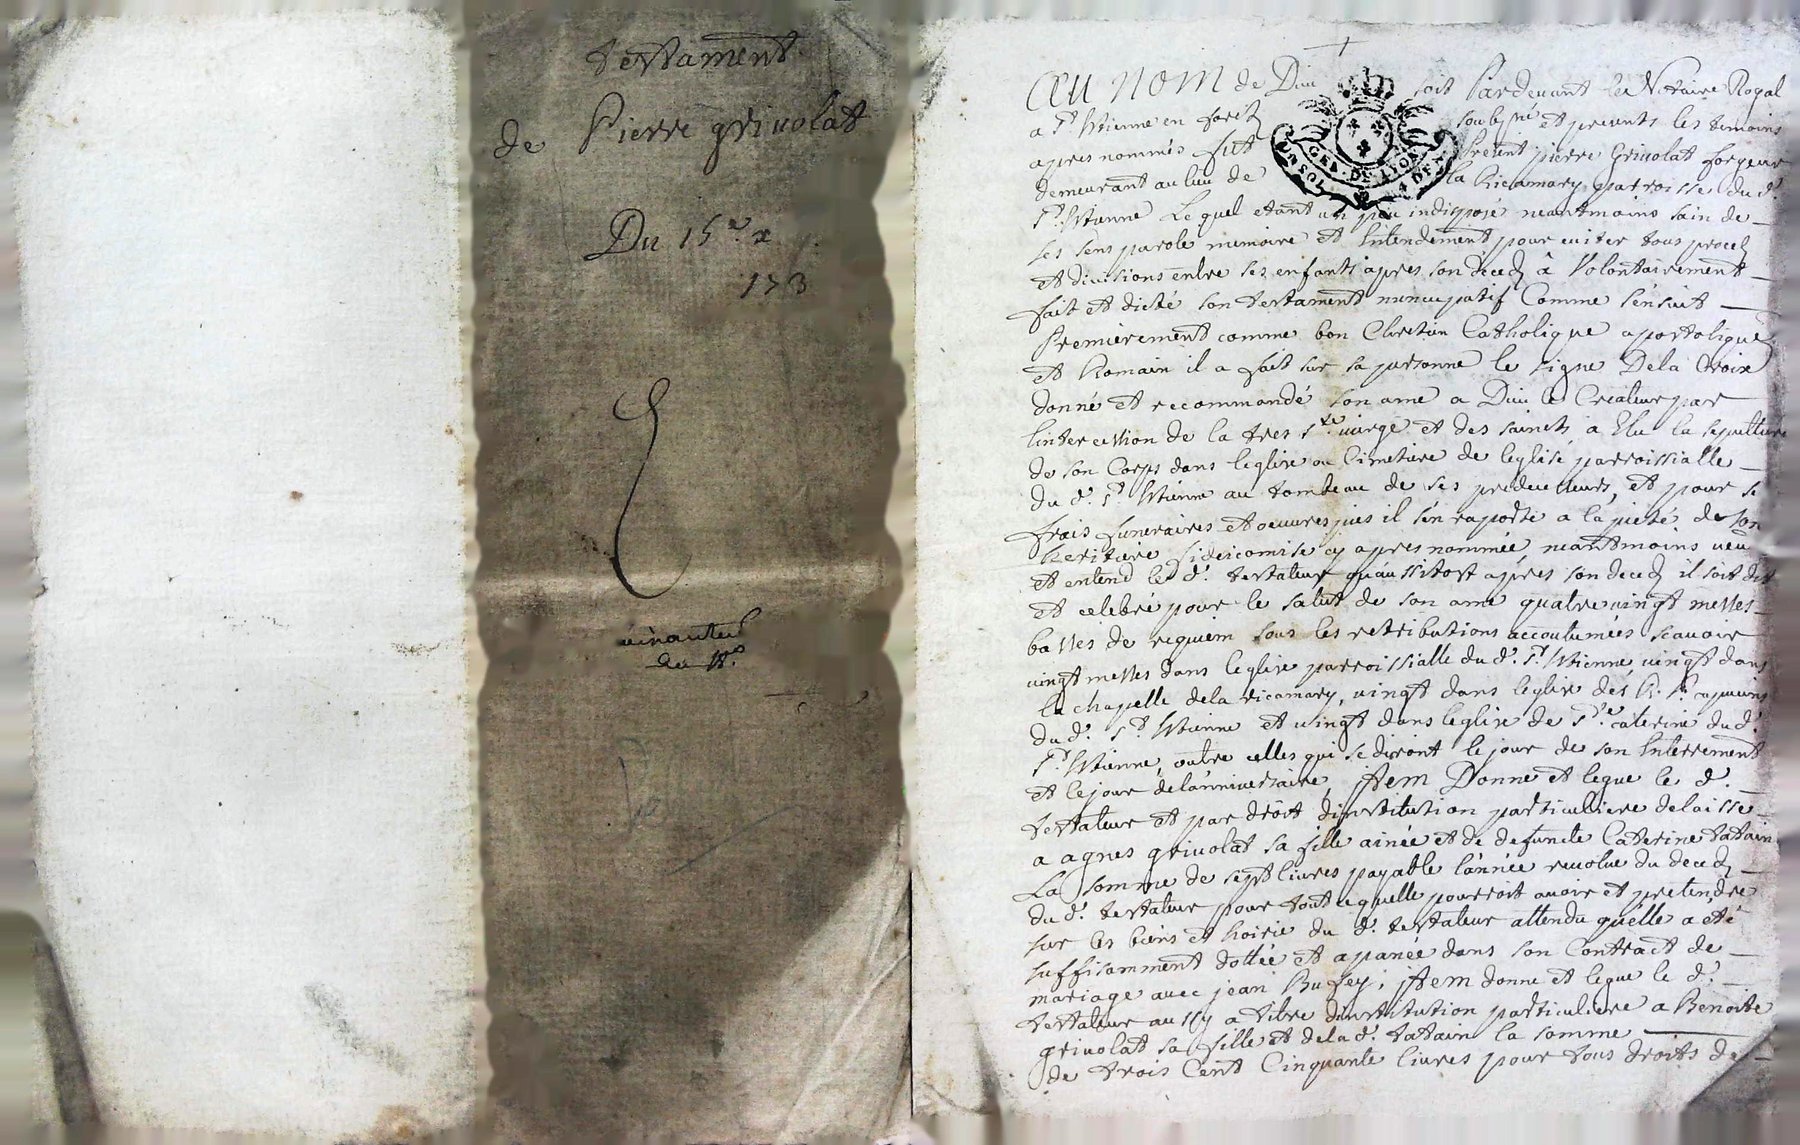 testament
de Pierre griuolat
Du 15e x
173
uinanteul
Au nom de Dieu soit Pardeuant le Notaire Royal
a St Etienne en forêz soubsné et presents les temoins
apres nommés fut Present pierre Griuolat forgeur
demeurant au lieu de la Ricamary parroisse du d.
St. Etienne Lequel etant un peu indisposé neantmoins sain de
ses sens parole memoire et Entendement pour euiter tous procez
et diuisions entre ses enfants apres son decez â Volontairement
fait et dicté son testament nuncupatif Comme sénsuit
Premierement comme bon Chretien Catholique apostolique
et Romain il a fait sur sa personne le signe Dela Croix
donné et recommandé son ame a Dieu le Createur par
l'intercession de la tres Ste uierge et des saincts a Elu la sepulture
de son Corps dans leglise ou Cimetiere de leglise parroissialle
du d. St Etienne au tombeau de ses predecesseurs, et pour se
frais funeraires et oeuures pies il sén raporte a la pieté de son
heritiere fideicomise cy apres nommée, neantmoins ueu
et entend le d. testateur quaussitost apres son decez il soit dit
et celebré pour le salut de son ame quatreuingt messes
basses de requiem sous les retributions accoutumées scauoir
uingt messes dans leglise parroissialle du d. St. Etienne uingt dans
la chapelle dela ricamary, uingt dans leglise des R. P. capucins
du d. St Etienne et uingt dans leglise de Ste caterine du d.
St. Etienne, outre celles qui se diront le jour de son Enterrement
et le jour delánniuersaire, Item Donne et legue le d.
testateur et par droit dinstitution particulliere delaisse
a agnes griuolat sa fille ainée et de defuncte Caterine tatain
La somme de sept liures payable lánnée reuolue du decez
du d. testateur pour tout ce quelle pourroit auoir et pretendre
sur les biens et hoirie du d. testateur attendu quélle a été
suffisamment dottée et apanée dans son Contract de
mariage auec jean Bufey; Item donne et legue le d.
testateur aussy a titre dinstitution particuliere a Benoite
griuolat sa fille et dela d. tatain la somme
de trois Cent Cinquante liures pour tous droits de